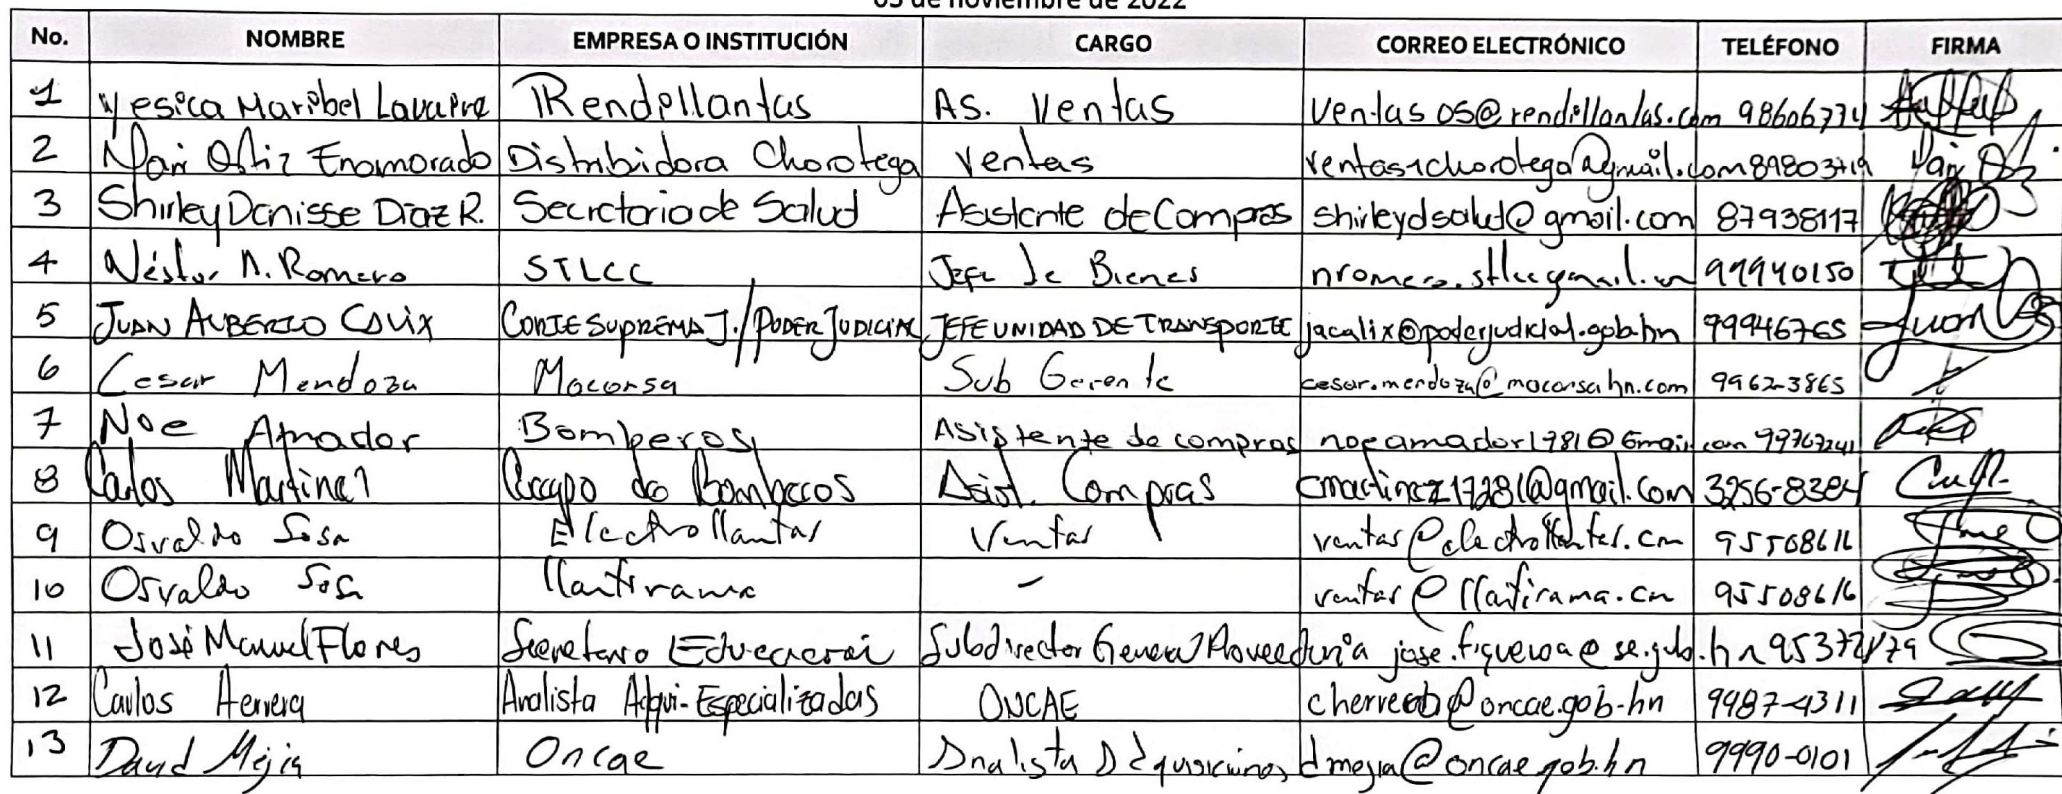 03 de noviembre de 2022
No. NOMBRE EMPRESA O INSTITUCIÓN CARGO CORREO ELECTRÓNICO TELÉFONO FIRMA
1 Yesica Maribel Rendillantas AS. Ventas Ventas05@rendillantas.com 98606774
2 Ortiz Enamorado Distribidora Chorotega Ventas ventas1chorotega@gmail.com
3 Shirley Danisse Diaz R. Secretaria de Salud Asistente de Compras shirleydsalud@gmail.com 87938117
4 Néstor A. Romero STLCC Jefe de Bienes 99940150
5 JUAN ALBERTO CALIX CORTE SUPREMA J./PODER JUDICIAL JEFE UNIDAD DE TRANSPORTE jacalix@poderjudicial.gob.hn 99946765 Juan
6 Cesar Mendoza Macorsa Sub Gerente cesar.mendoza@macorsahn.com 9962-3865
7 Noe Amador Bomberos Asistente de compras noeamador1981@Gmail.com 99767241
8 Carlos Martinez Cuerpo de Bomberos Asist. Compras cmartinez17281@gmail.com 3256-8384
9 Osvaldo Sosa Electrollantas Ventas ventas@electrollantas.com 95508616
10 Osvaldo Sosa Llantirama - ventas@llantirama.com 95508616
11 José Manuel Flores Subdirector General Proveeduria jose.figueroa@se.gob.hn
12 Carlos Herrera Analista Adqui-Especializadas ONCAE 9987-4311
13 David Mejia Oncae Analista Adquisiciones dmejia@oncae.gob.hn 9990-0101